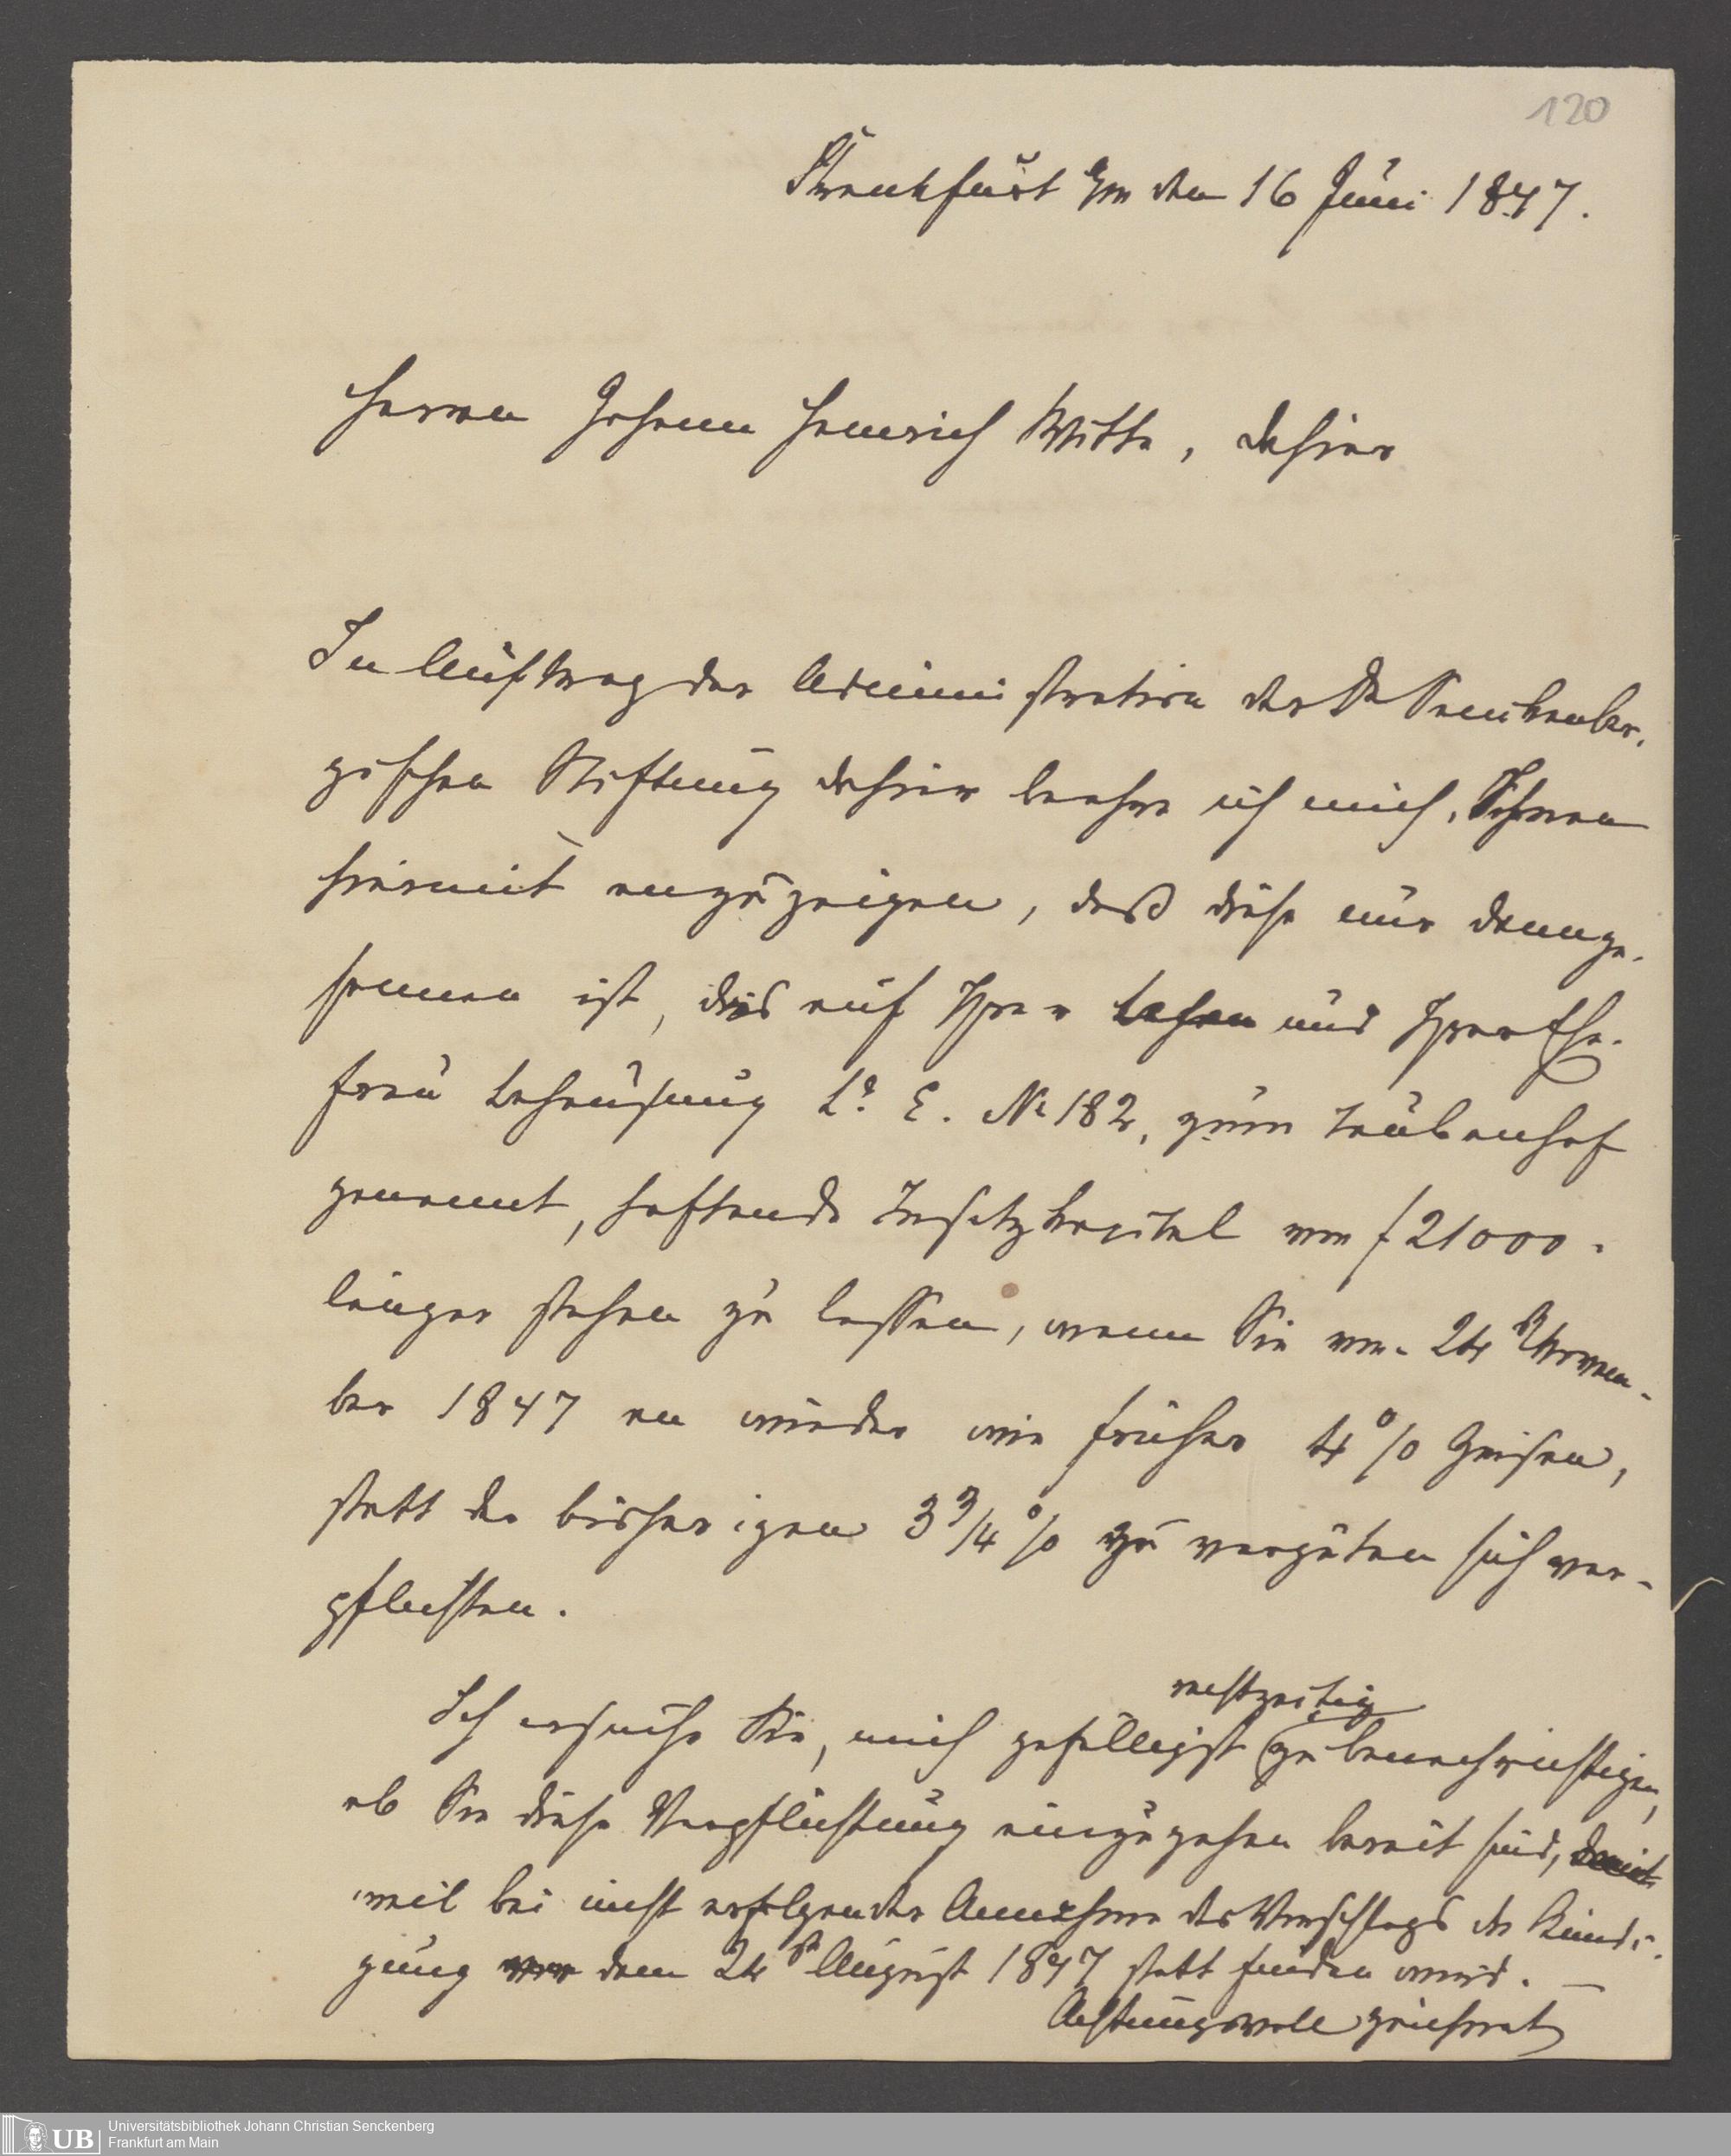 120
Frankfurt a/m den 16 Juni 1847.
Herrn Johann Heinrich Witte, dahier
Im Auftrag der Administration der Dr Senckenber-
gischen Stiftung dahier beehre ich mich, Ihnen
hiermit anzuzeigen, daß diese nur dann ge-
sonnen ist, das auf Ihrer und Ihrer Ehe-
frau Behausung Lr. E. No 182, zum Taubenhof
genannt, haftende Insatzkapital von f 21000.
länger stehen zu lassen, wenn Sie vom 24 Novem-
ber 1847 an wieder wie früher 4 % Zinsen,
statt der bisherigen 3 3/4 % zu vergüten sich ver-
pflichten.
rechtzeitig
Ich ersuche Sie, mich gefälligst zu benachrichtigen,
ob Sie diese Verpflichtung einzugehen bereit sind,
weil bei nicht erfolgender Annahme des Vorschlags die Kündi-
gung vor dem 24 August 1847 statt finden wird. —
Achtungsvoll zeichnet
UB
Universitätsbibliothek Johann Christian Senckenberg
Frankfurt am Main